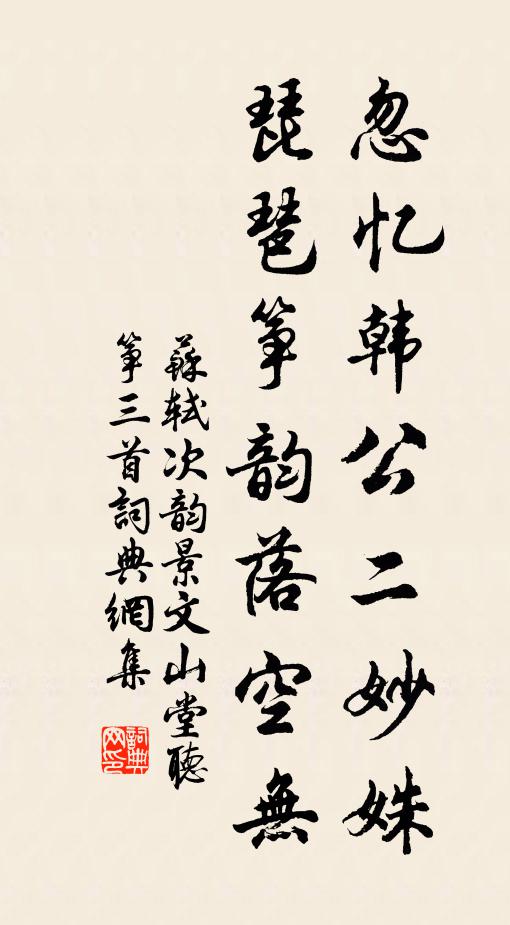 忽忆韩公二妙姝
琵琶筝韵落空無
蘇轼次韵景文山堂聴
筝三首詞典網集
詞典
网印